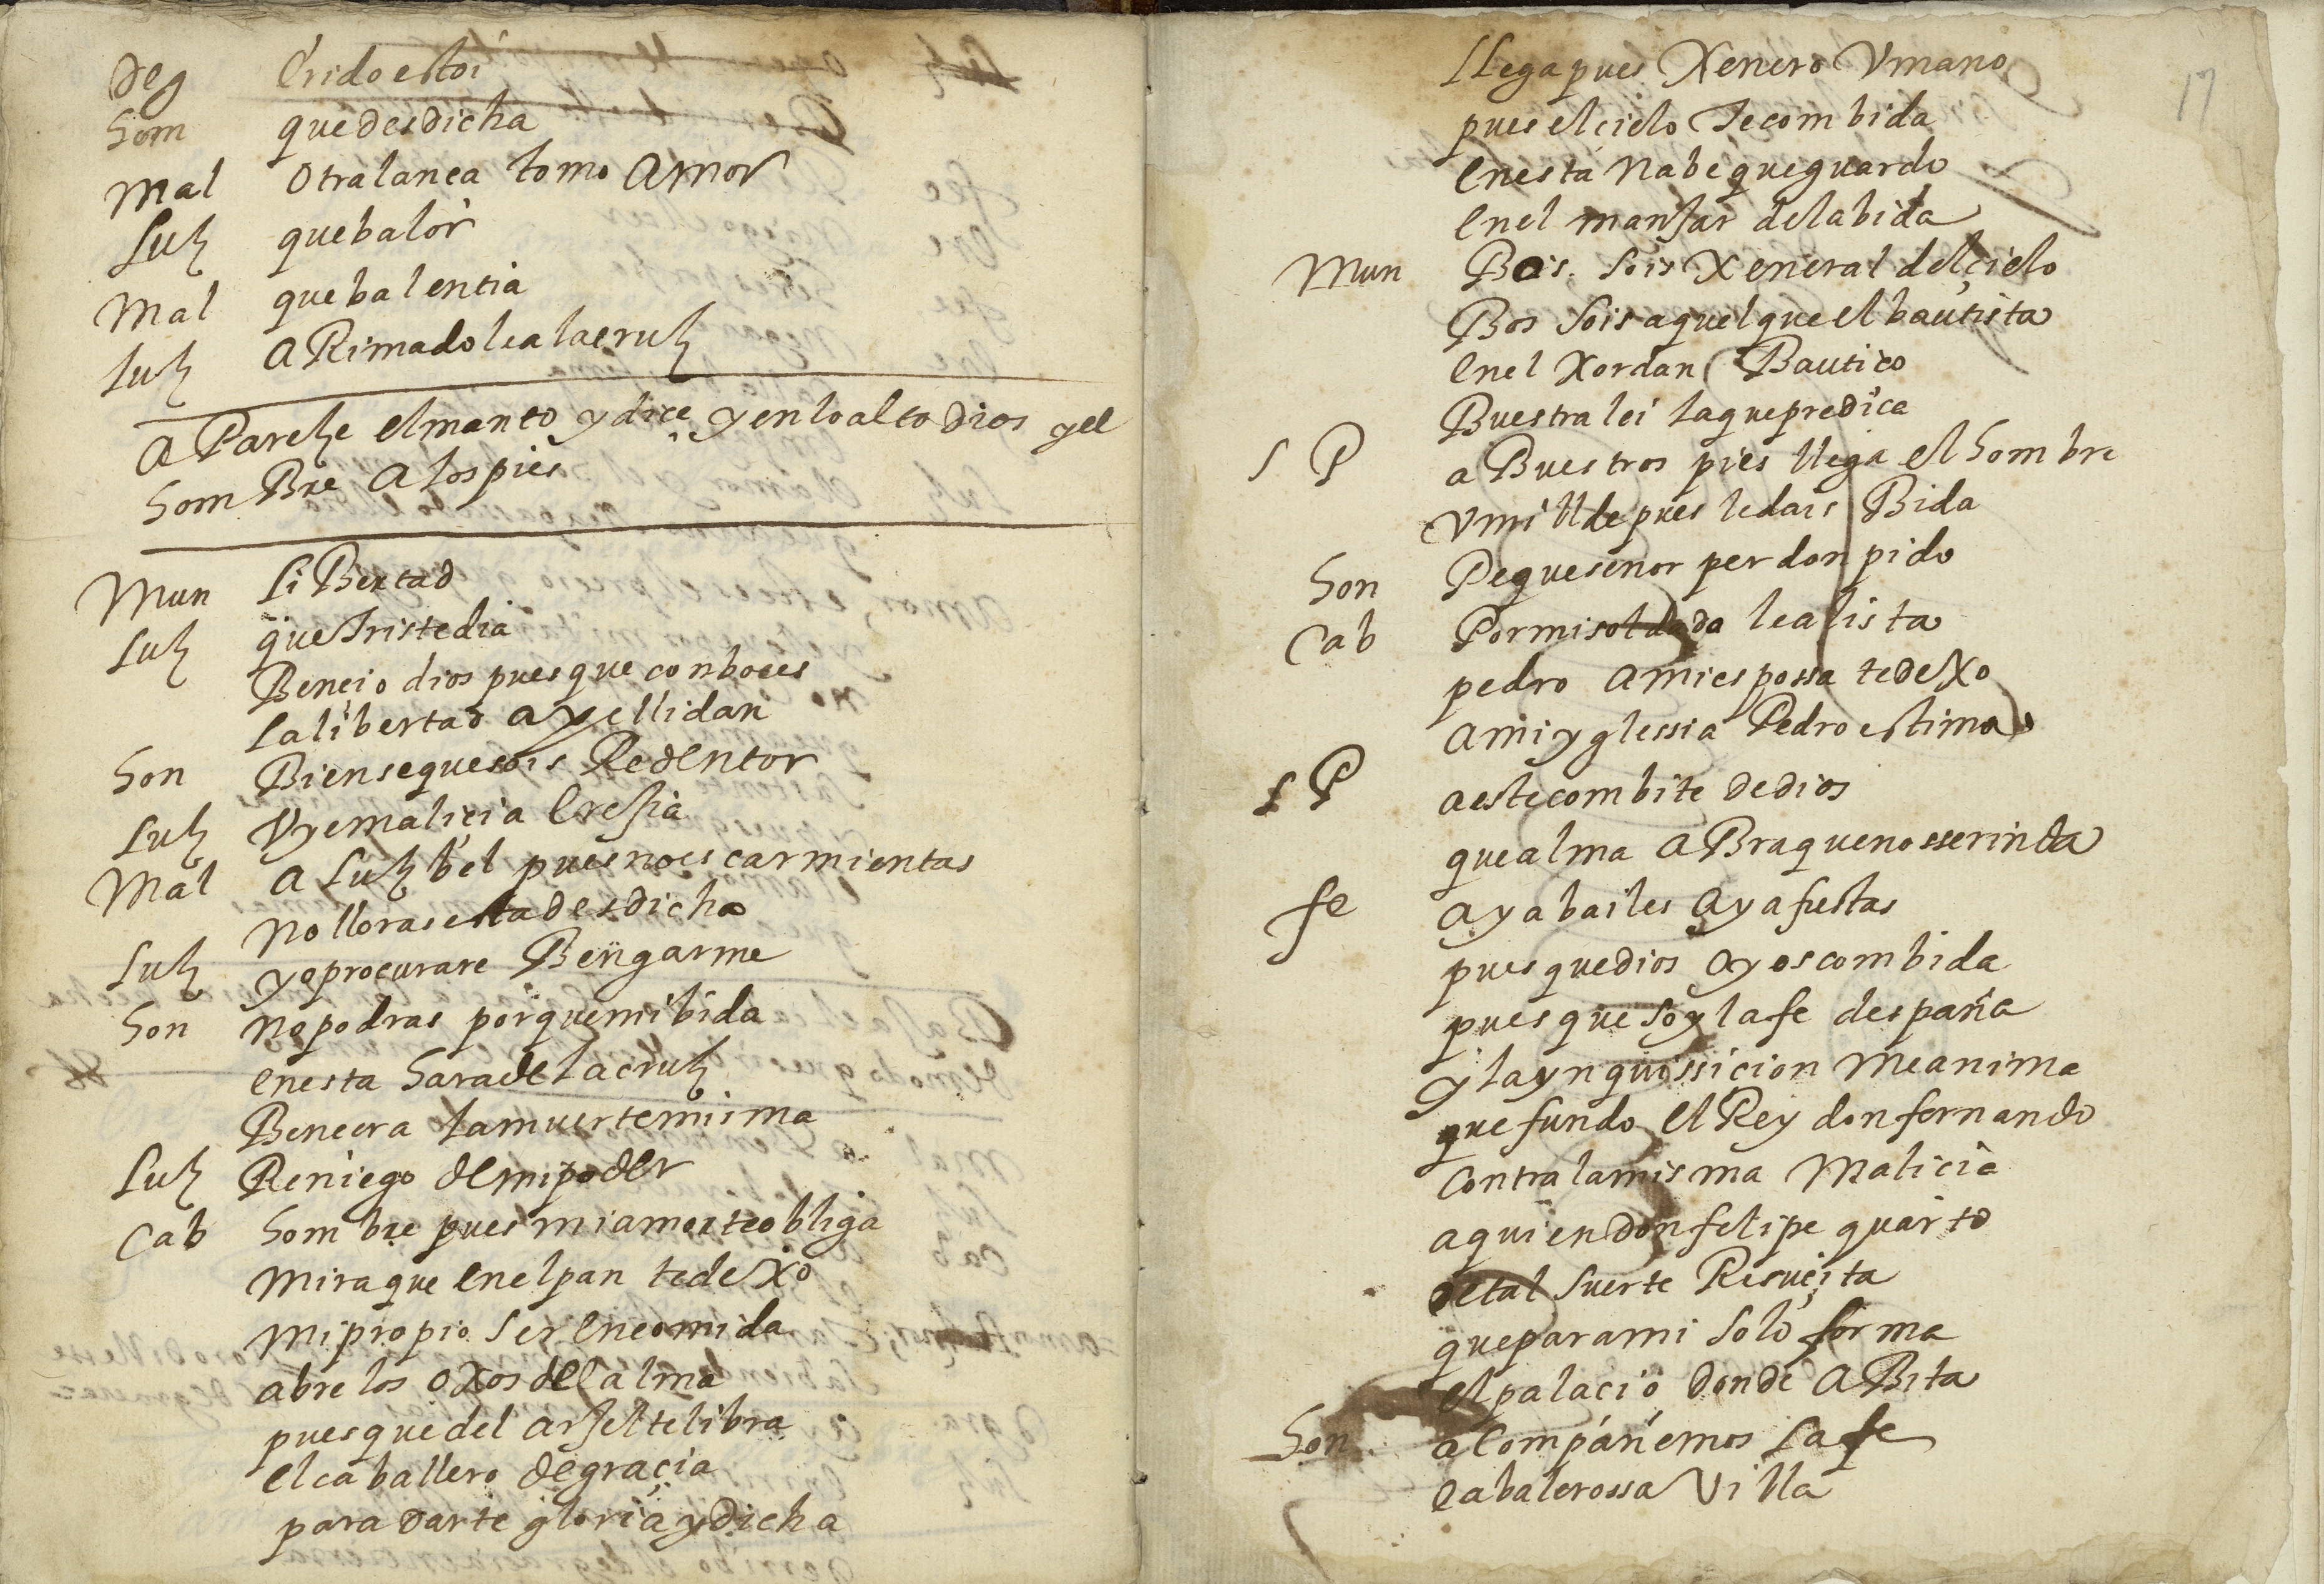 Deg erido estoi
hom que desdicha
Mal otra lança tomo Amor
Luz que balor
Mal que balentia
Luz ARimadole a la cruz
A Pareze el manto y dice y en lo alto dios y el
hom Bre A los pies
Mun LiBertad
Luz que triste dia
Bencio dios pues que con boces
La libertad apellidan
hon Bien se que sois Redentor
Luz Uye malicia eresia
Mal A Luzbel pues no escarmientas
no lloras esta desdicha
Luz yo procurare Bengarme
hon no podras porque mi bida
en esta hara de la cruz
Bencera la muerte misma
Luz Reniego de mi poder
Cab hombre pues mi amor te obliga
mira que en el pan te dexo
mi propio ser en comida
abre los oxos del alma
pues que del arzel te libra
el caballero de graçia
para darte gloria y dicha
17
LLega pues Xenero Umano
pues el cielo te combida
en esta nabe que guardo
en el manxar de la bida
Mun Bos sois Xeneral del cielo
Bos sois aquel que el bautista
en el Xordan Bautiço
Buestra lei la que predica
S P a Buestros pies llega el hombre
Umillde pues le dais Bida
hon Peque señor perdon pido
Cab Por mi soldado le alista
pedro a mi espossa te dexo
a mi yglessia Pedro estima
S P a este combite de dios
que alma aBra que no sse rinda
fe aya bailes aya fiestas
pues que dios oy os combida
pues que soy la fe despaña
y la ynquissicion me anima
que fundo el Rey don fernando
Contra la misma Malicia
a quien don felipe quarto
de tal suerte Resuçita
que para mi solo forma
el palacio donde aBita
hon acompáñemos La fe
cabalerossa Villa